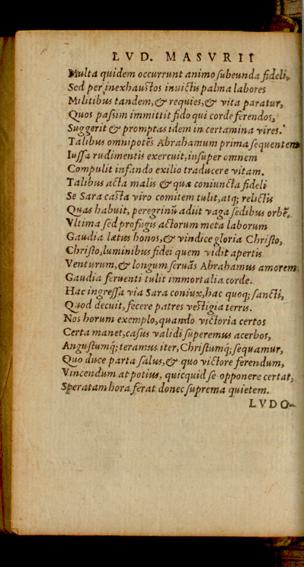 LVD. MASVRII
Multa quidem occurrunt animo subeunda fideli,
Sed per inexhaustos inuictis palma labores
Militibus tandem, & requies, & vita paratur,
Quos passim immittit fido qui corde ferendos,
Suggerit & promptas idem in certamina vires.
Talibus omnipotēs Abrahamum prima sequentem
Iussa rudimentis exercuit, insuper omnem
Compulit infando exilio traducere vitam.
Talibus acta malis & quæ coniuncta fideli
Se Sara casta viro comitem tulit, atq; relictis
Quas habuit, peregrinū adiit vaga sedibus orbē.
Vltima sed profugis actorum meta laborum
Gaudia lætus honos, & vindice gloria Christo,
Christo, luminibus fidei quem vidit apertis
Venturum, & longum seruās Abrahamus amorem
Gaudia feruenti tulit immortalia corde.
Hac ingressa via Sara coniux, hac quoq; sancti,
Quod decuit, fecere patres vestigia terris.
Nos horum exemplo, quando victoria certos
Certa manet, casus validi superemus acerbos,
Angustumq; teramus iter, Christumq; sequamur,
Quo duce parta salus, & quo victore ferendum,
Vincendum at potius, quicquid se opponere certat,
Speratam hora ferat donec suprema quietem.
LVDO-